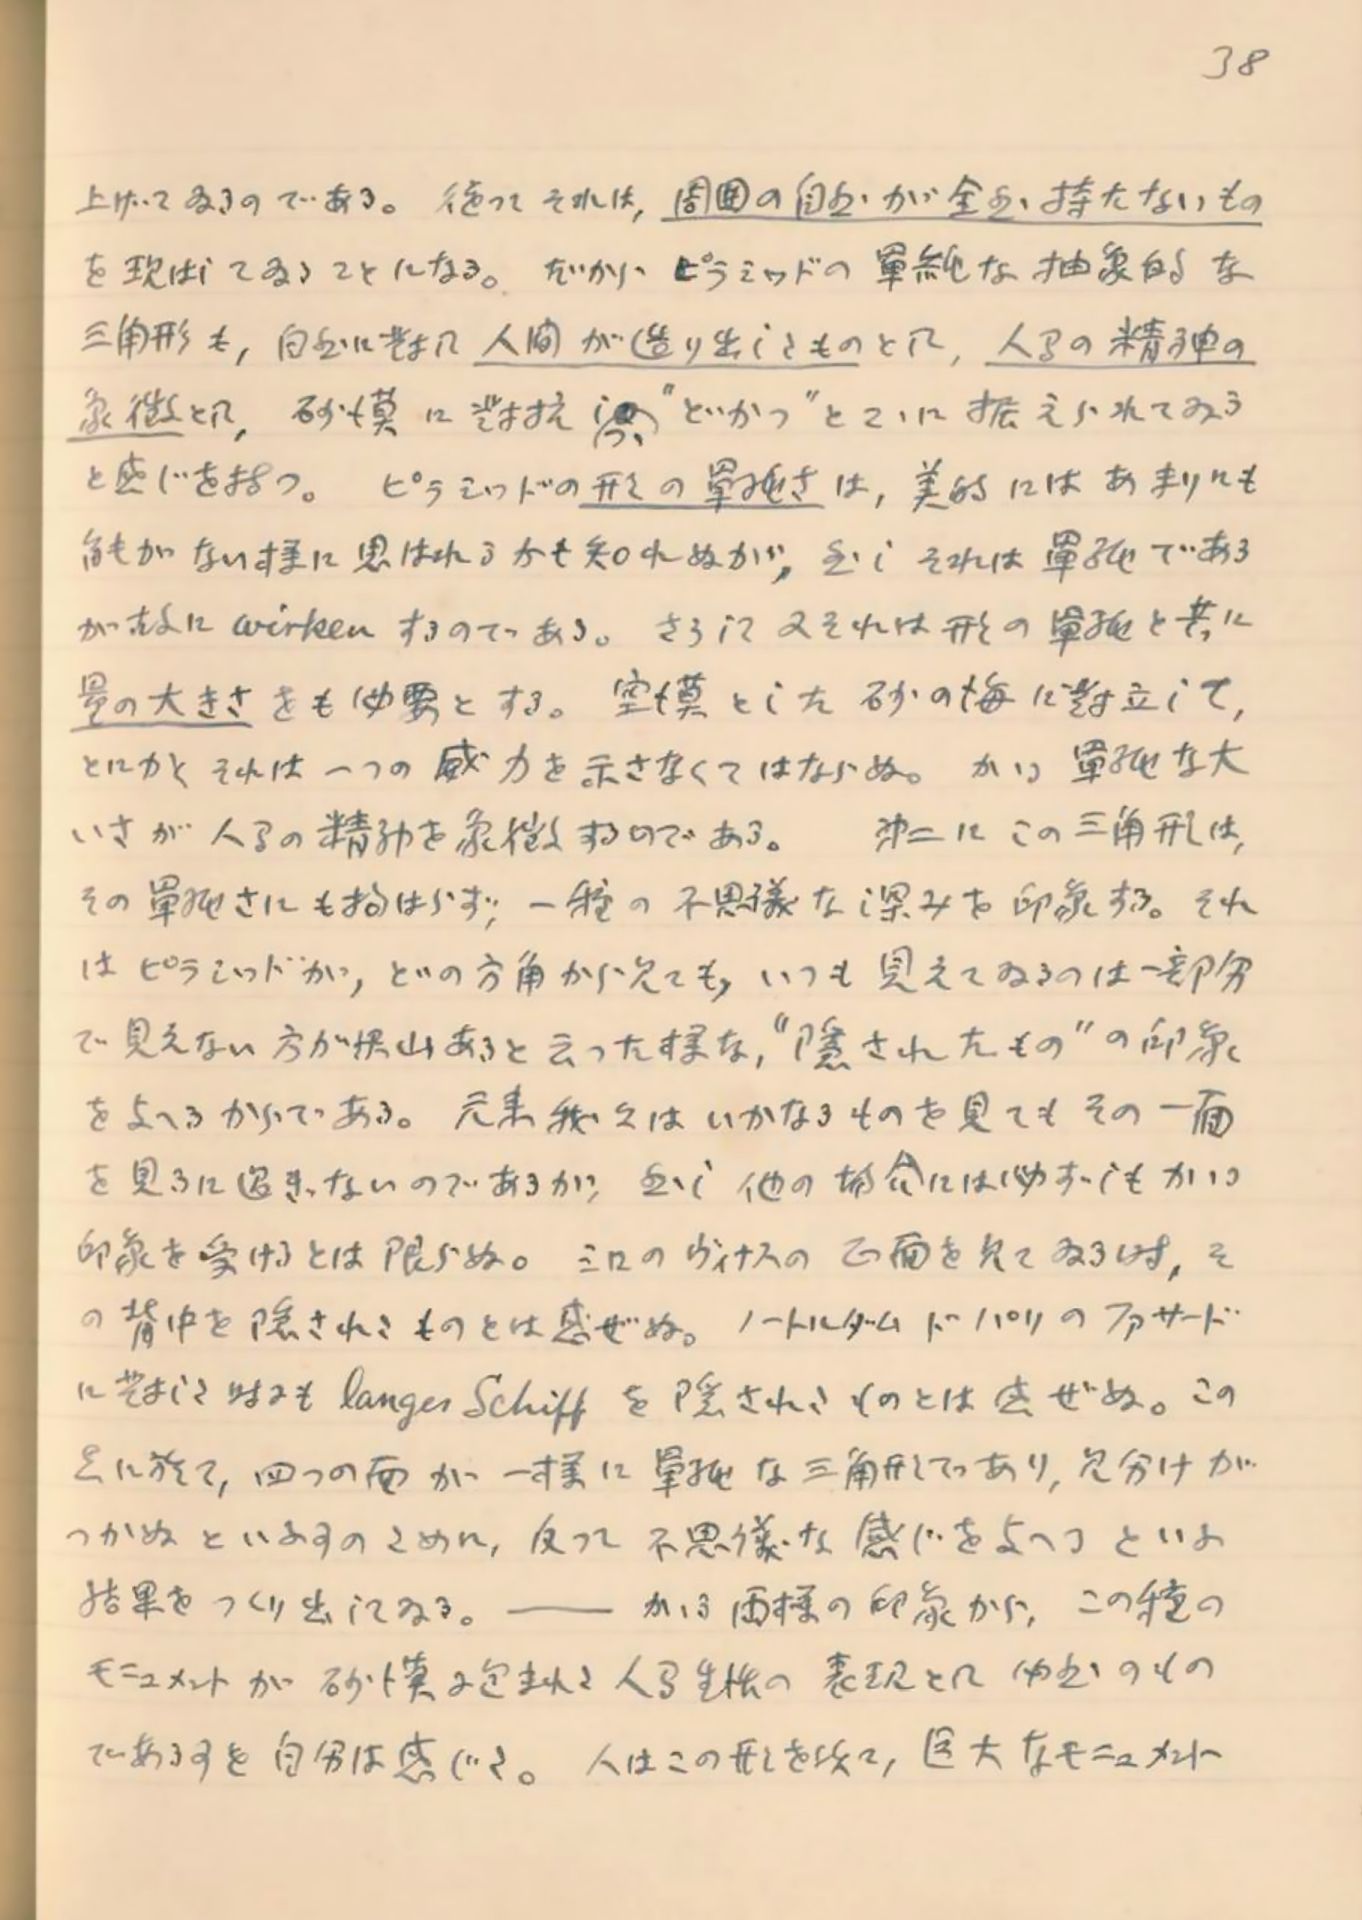 38
上げてゐるのである。従つてそれは，周囲の自然が全然持たないもの
を現はしてゐることになる。だから ピラミッドの 單純な 抽象的な
三角形も，自然に対して 人間が造り出したものとして，人間の精神の
象徴として，砂漠に対抗し “どかつ”とそこに据えられてゐる
と感じを持つ。 ピラミッドの形の單純さは，美的にはあまりにも
能がない様に思はれるかも知れぬが，然しそれは單純である
が故に wirken するのである。さうして又それは形の單純と共に
量の大きさをも必要とする。空漠とした砂の海に対立して，
とにかくそれは一つの威力を示さなくてはならぬ。かゝる單純な大
いさが人間の精神を象徴するのである。 第二にこの三角形は，
その單純さにも拘はらず，一種の不思議な深みを印象する。それ
はピラミッドが，どの方角から見ても，いつも見えてゐるのは一部分
で見えない方が沢山あると云った様な，“隠されたもの”の印象
を与へるからである。元来我々はいかなるものを見てもその一面
を見るに過ぎないのであるが，然し他の場合には必ずしもかゝる
印象を受けるとは限らぬ。ミロのヴィナスの正面を見てゐる時，そ
の背中を隠されたものとは感ぜぬ。ノートルダム ド パリのファサード
に対した時にも langer Schiff を隠されたものとは感ぜぬ。この
点に於て，四つの面が一様に單純な三角形であり，見分けが
つかぬといふ事のために，反つて不思議な感じを与へるといふ
結果をつくり出してゐる。—— かゝる両様の印象から，この種の
モニュメントが砂漠に包まれた人間生活の表現として必然のもの
である事を自分は感じた。人はこの形を以て，巨大なモニュメント